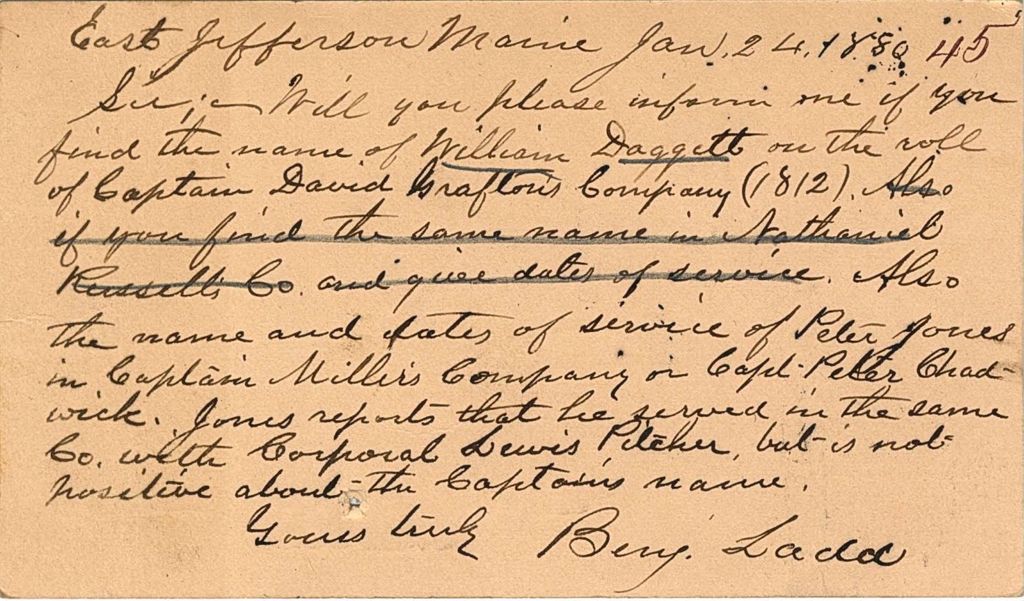 East Jefferson Maine Jan, 24, 1880 45
Sir;— Will you please inform me if you
find the name of William Daggett on the roll
of Captain David Grafton's Company (1812). Also
if you find the same name in Nathaniel
Russell's Co. and give dates of service. Also
the name and dates of service of Peter Jones
in Captain Miller's Company or Capt- Peter Chad-
wick. Jones reports that he served in the same
Co. with Corporal Lewis Pitcher, but is not
positive about the Captain's name.
Yours truly Benj. Ladd